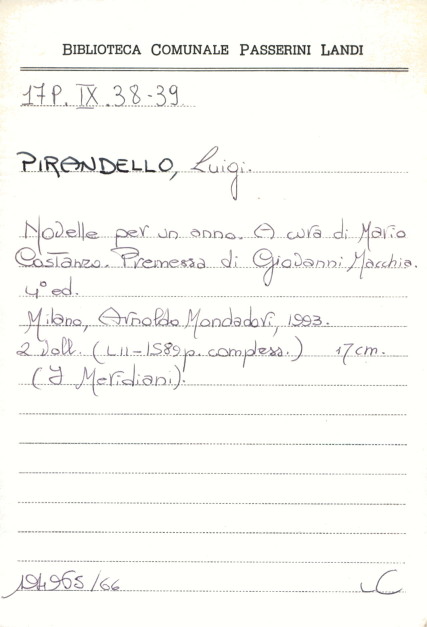 BIBLIOTECA COMUNALE PASSERINI LANDI
17P. IX. 38-39
PIRANDELLO, Luigi.
Novelle per un anno. A cura di Mario
Costanzo. Premessa di Giovanni Macchia.
4° ed.
Milano, Arnoldo Mondadori, 1993.
2 voll. (LII-1589 p. compless.) 17 cm.
(I Meridiani).
194965/66